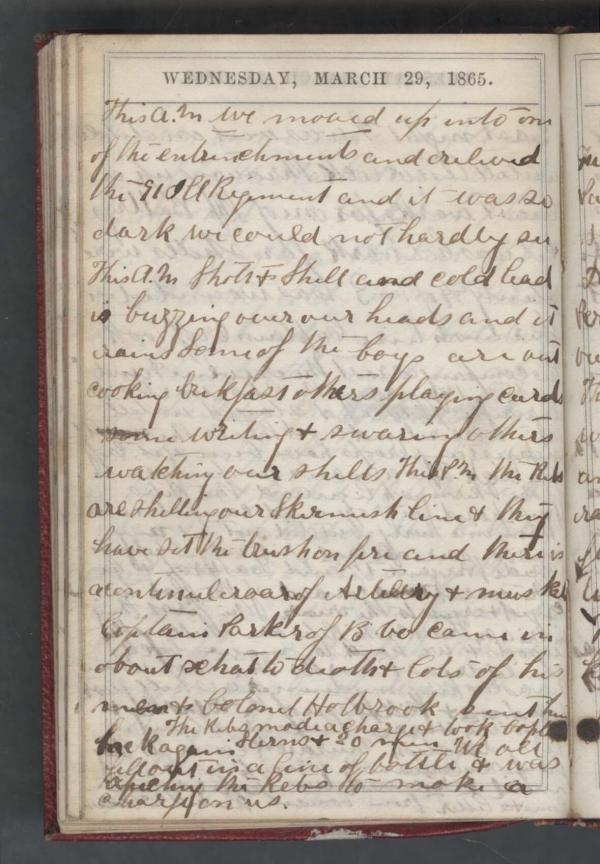 WEDNESDAY, MARCH 29, 1865.
This A.M we moved up into our
of the entrenchments and relieved
the 91 Ill Regiment and it was so
dark we could not hardly see
This A.M Shot & Shell and cold lead
is buzzing over our heads and it
rains Some of the boys are out
cooking brekfast others playing cards
some writing & swaring others
watching our shells This P.M. the Rebs
are shelling our Skirmish line & they
have set the brush on fire and there is
a continul roar of Artillery & musket
Captain Parker of B Co came in
about schat to death & lots of his
men & Colonel Holbrook sent him
back again
The Rebs made a charge & took Capt
Sterns & 20 men We are
all out in a line of battle & was
the Rebs to make a
charge on us.